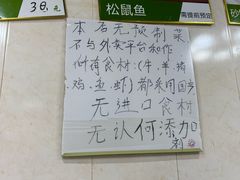 38.元
松鼠鱼
需提前预定
本店无预制菜
不与外卖平台和作
所有食材:(牛.羊.猪
.鸡.鱼.虾)都采用国产
无进口食材
无认何添加
剂